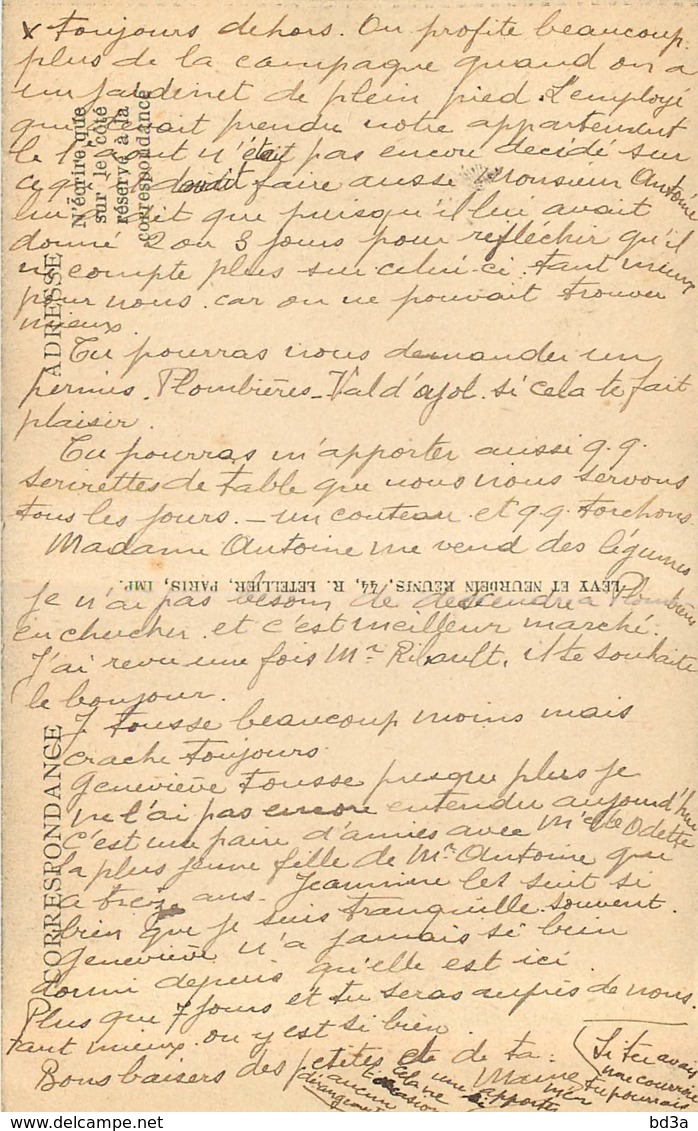 x toujours dehors. On profite beaucoup
plus de la campagne quand on a
un jardinet de plein pied. L'employé
qui devait prendre notre appartement
le 1 août n'était pas encore décidé sur
ce qu'il devait faire aussi Monsieur Antoine
lui a dit que puisqu'il lui avait
donné 2 ou 3 jours pour réfléchir qu'il
ne compte plus sur celui-ci. tant mieux
pour nous. car on ne pouvait trouver
mieux.
Tu pourras nous demander un
permis. Plombières-Val d'ajol. si cela te fait
plaisir.
Tu pourras m'apporter aussi q.q.
serviettes de table que nous nous servons
tous les jours. - un couteau et qq torchons.
Madame Antoine me vend des légumes
Je n'ai pas besoin de descendre a Plombières
en chercher. et c'est meilleur marché.
J'ai revu une fois Mr Ribault, il te souhaite
le bonjour.
J tousse beaucoup moins mais
crache toujours.
Geneviève tousse presque plus je
ne l'ai pas encore entendu aujourd'hui
C'est une paire d'amies avec Melle Odette
la plus jeune fille de Mr Antoine qui
a treize ans. Jeannine les suit si
bien que je suis tranquille souvent.
Geneviève n'a jamais si bien
dormi depuis qu'elle est ici.
Plus que 7 jours et tu seras auprès de nous.
tant mieux. on y est si bien.
Bons baisers des petites et de ta
Mame
Si tu avais
une courroie
tu pourrais
m'en
apporter
une
cela me
occasion
aucun
dérangement
N'écrire que
sur le côté
réservé à la
correspondance
ADRESSE
CORRESPONDANCE
LÉVY ET NEURDEIN RÉUNIS, 44, R. LETELLIER, PARIS, IMP.
bd3a
© delcampe.net